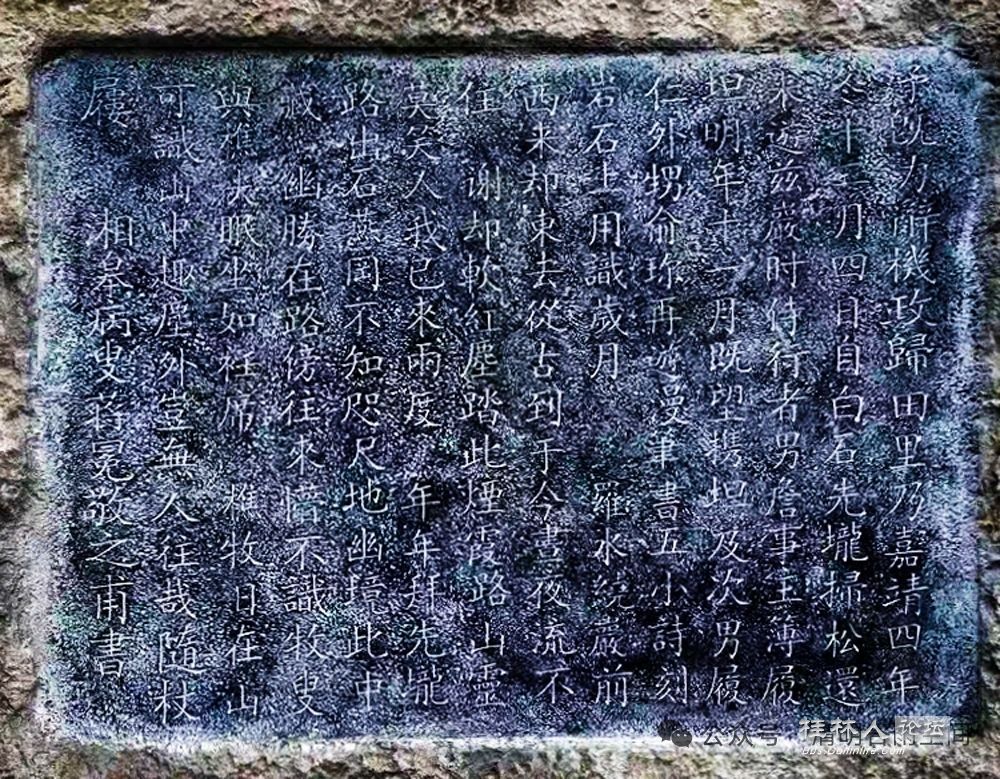 予既力辭機政歸田里乃嘉靖四年
冬十二月四日自白石先壠掃松還
來遊兹嵗时侍行者男詹事主簿履
坦明年十一月既望携坦及次男履
仁外甥俞琢再遊漫筆書五小詩刻
岩石上用識歲月 羅水繞巖前
西来却東去從古到于今晝夜流不
住 谢却軟紅塵踏此煙霞路山靈
莫笑人我已來兩度 年年拜先壠
路出石燕岡不知咫尺地幽境此中
藏 幽勝在路傍往來惜不識牧叟
與樵夫眠坐如衽席 樵牧日在山
可識山中趣塵外豈無人往哉隨杖
屨 相皋病叟蒋冕敬之甫書
公众号
桂林人论坛